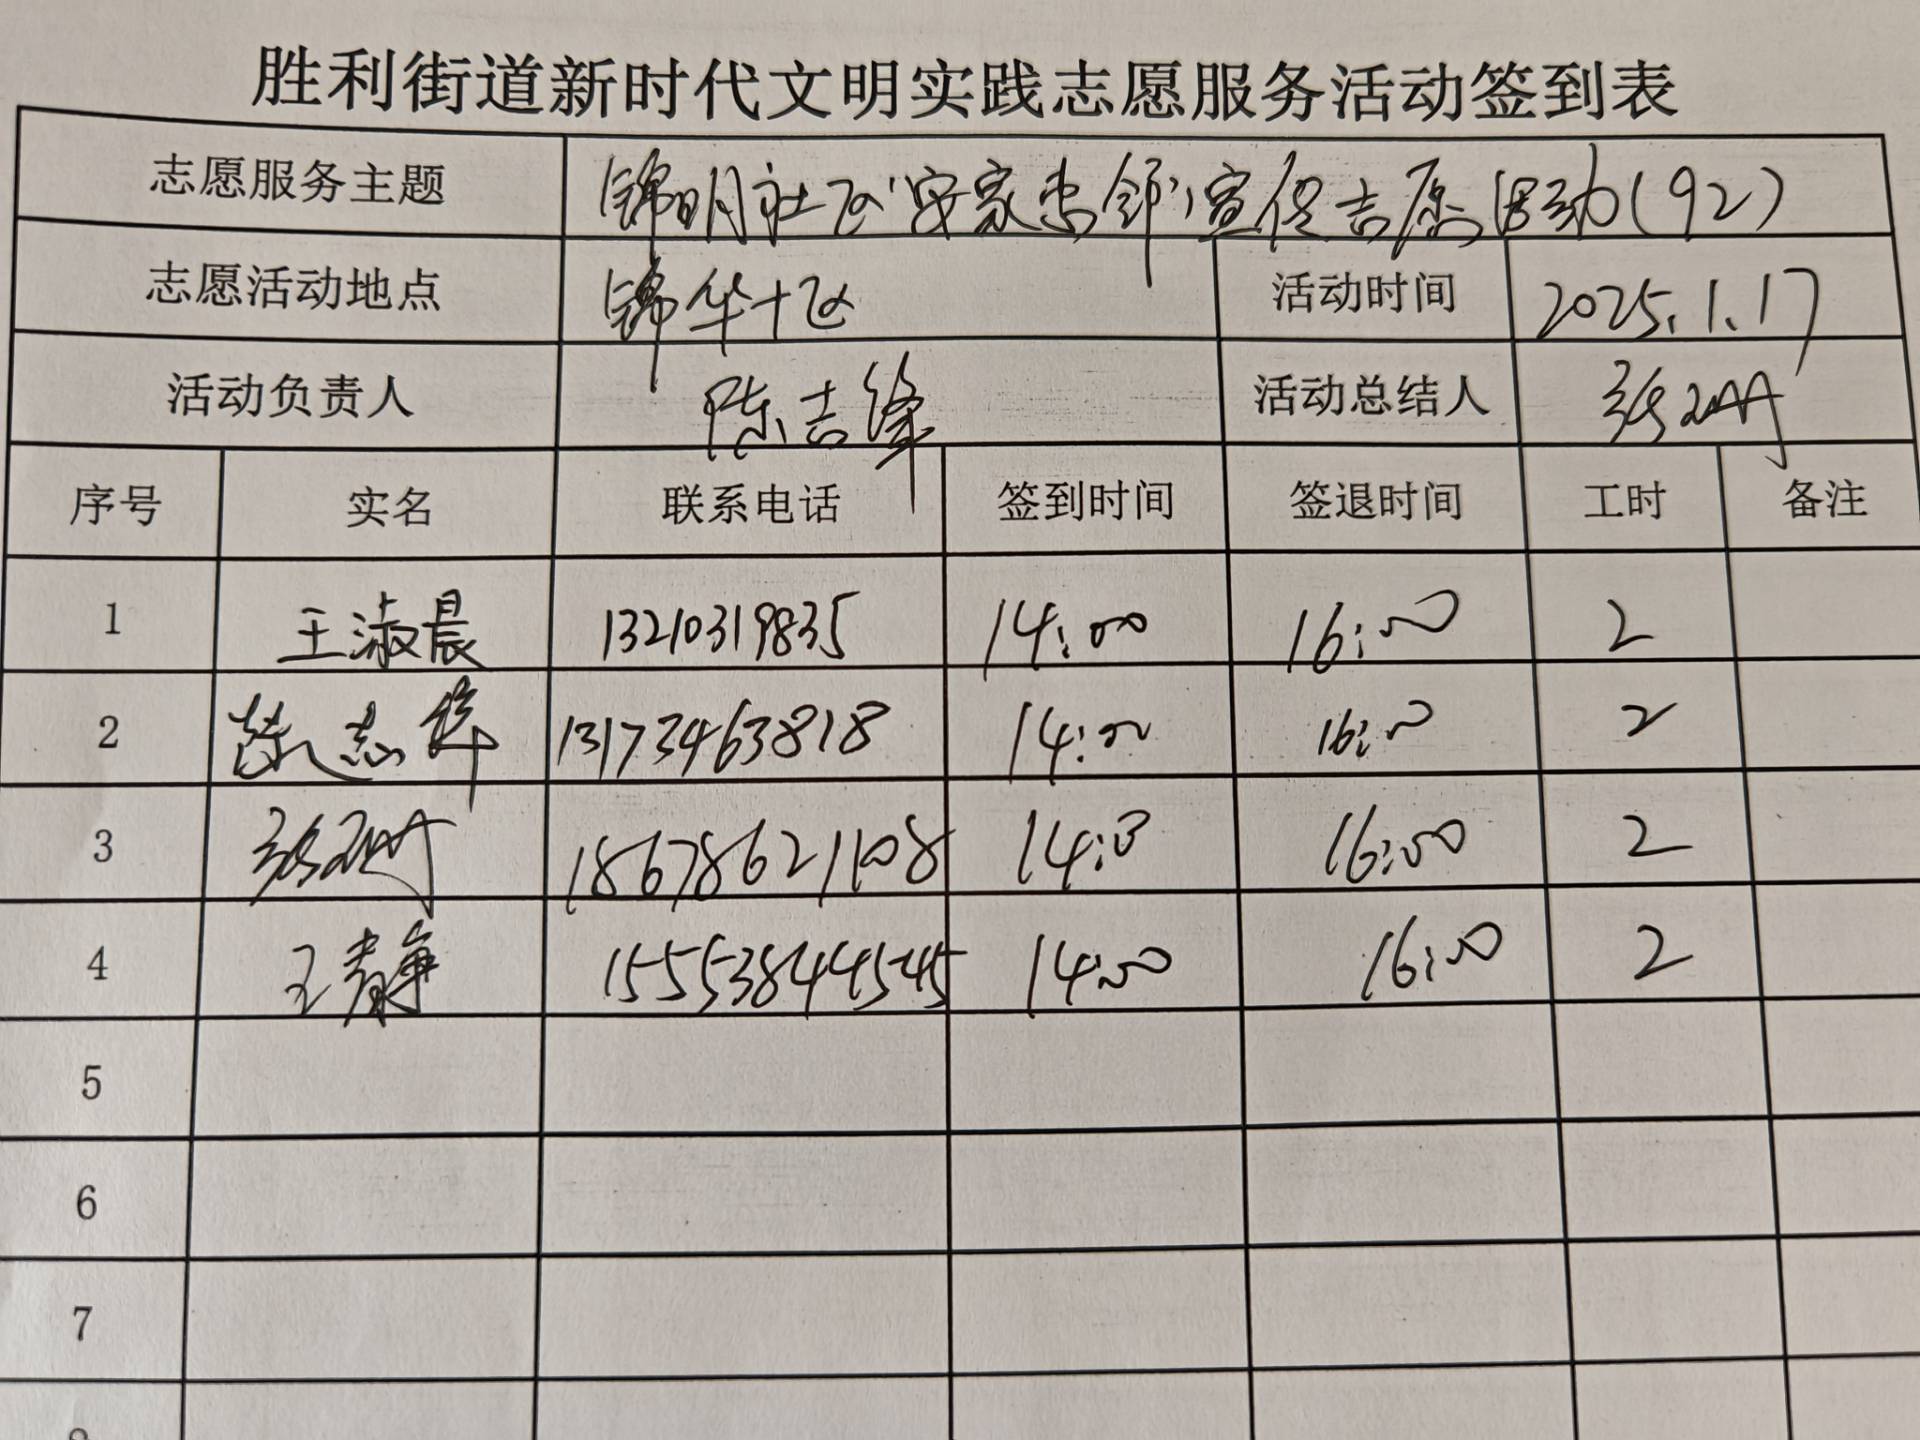 胜利街道新时代文明实践志愿服务活动签到表
志愿服务主题 锦明社区"安家 邻"宣 志愿活动(92)
志愿活动地点 锦华十区 活动时间 2025.1.17
活动负责人 陈吉 活动总结人 张
序号 实名 联系电话 签到时间 签退时间 工时 备注
1 王淑晨 13210319835 14:00 16:00 2
2 志 13173463818 14:00 16:00 2
3 张 18678621108 14:00 16:00 2
4 王静 15553844545 14:00 16:00 2
5
6
7